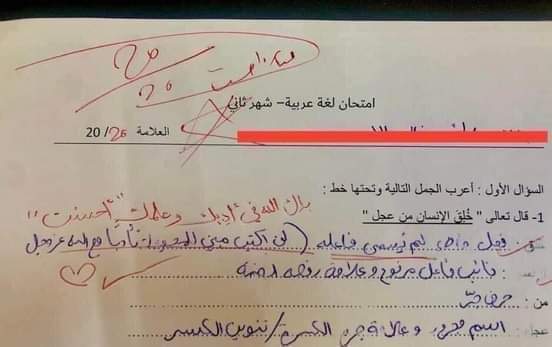 ممتاز أحسنت
20/20
امتحان لغة عربية – شهر ثاني
العلامة 20/20
السؤال الأول : أعرب الجمل التالية وتحتها خط :
بارك الله في أدبك وعلمك "أحسنت"
1- قال تعالى " خُلِقَ الإنسان من عجل "
خلق : فعل ماض لم يُسمى فاعله (لن أكتب مبني للمجهول تأدبا مع الله عز وجل
: نائب فاعل مرفوع وعلامة رفعه الضمة
من : حرف جر
عجل : اسم مجرور وعلامة جره الكسرة / تنوين الكسر